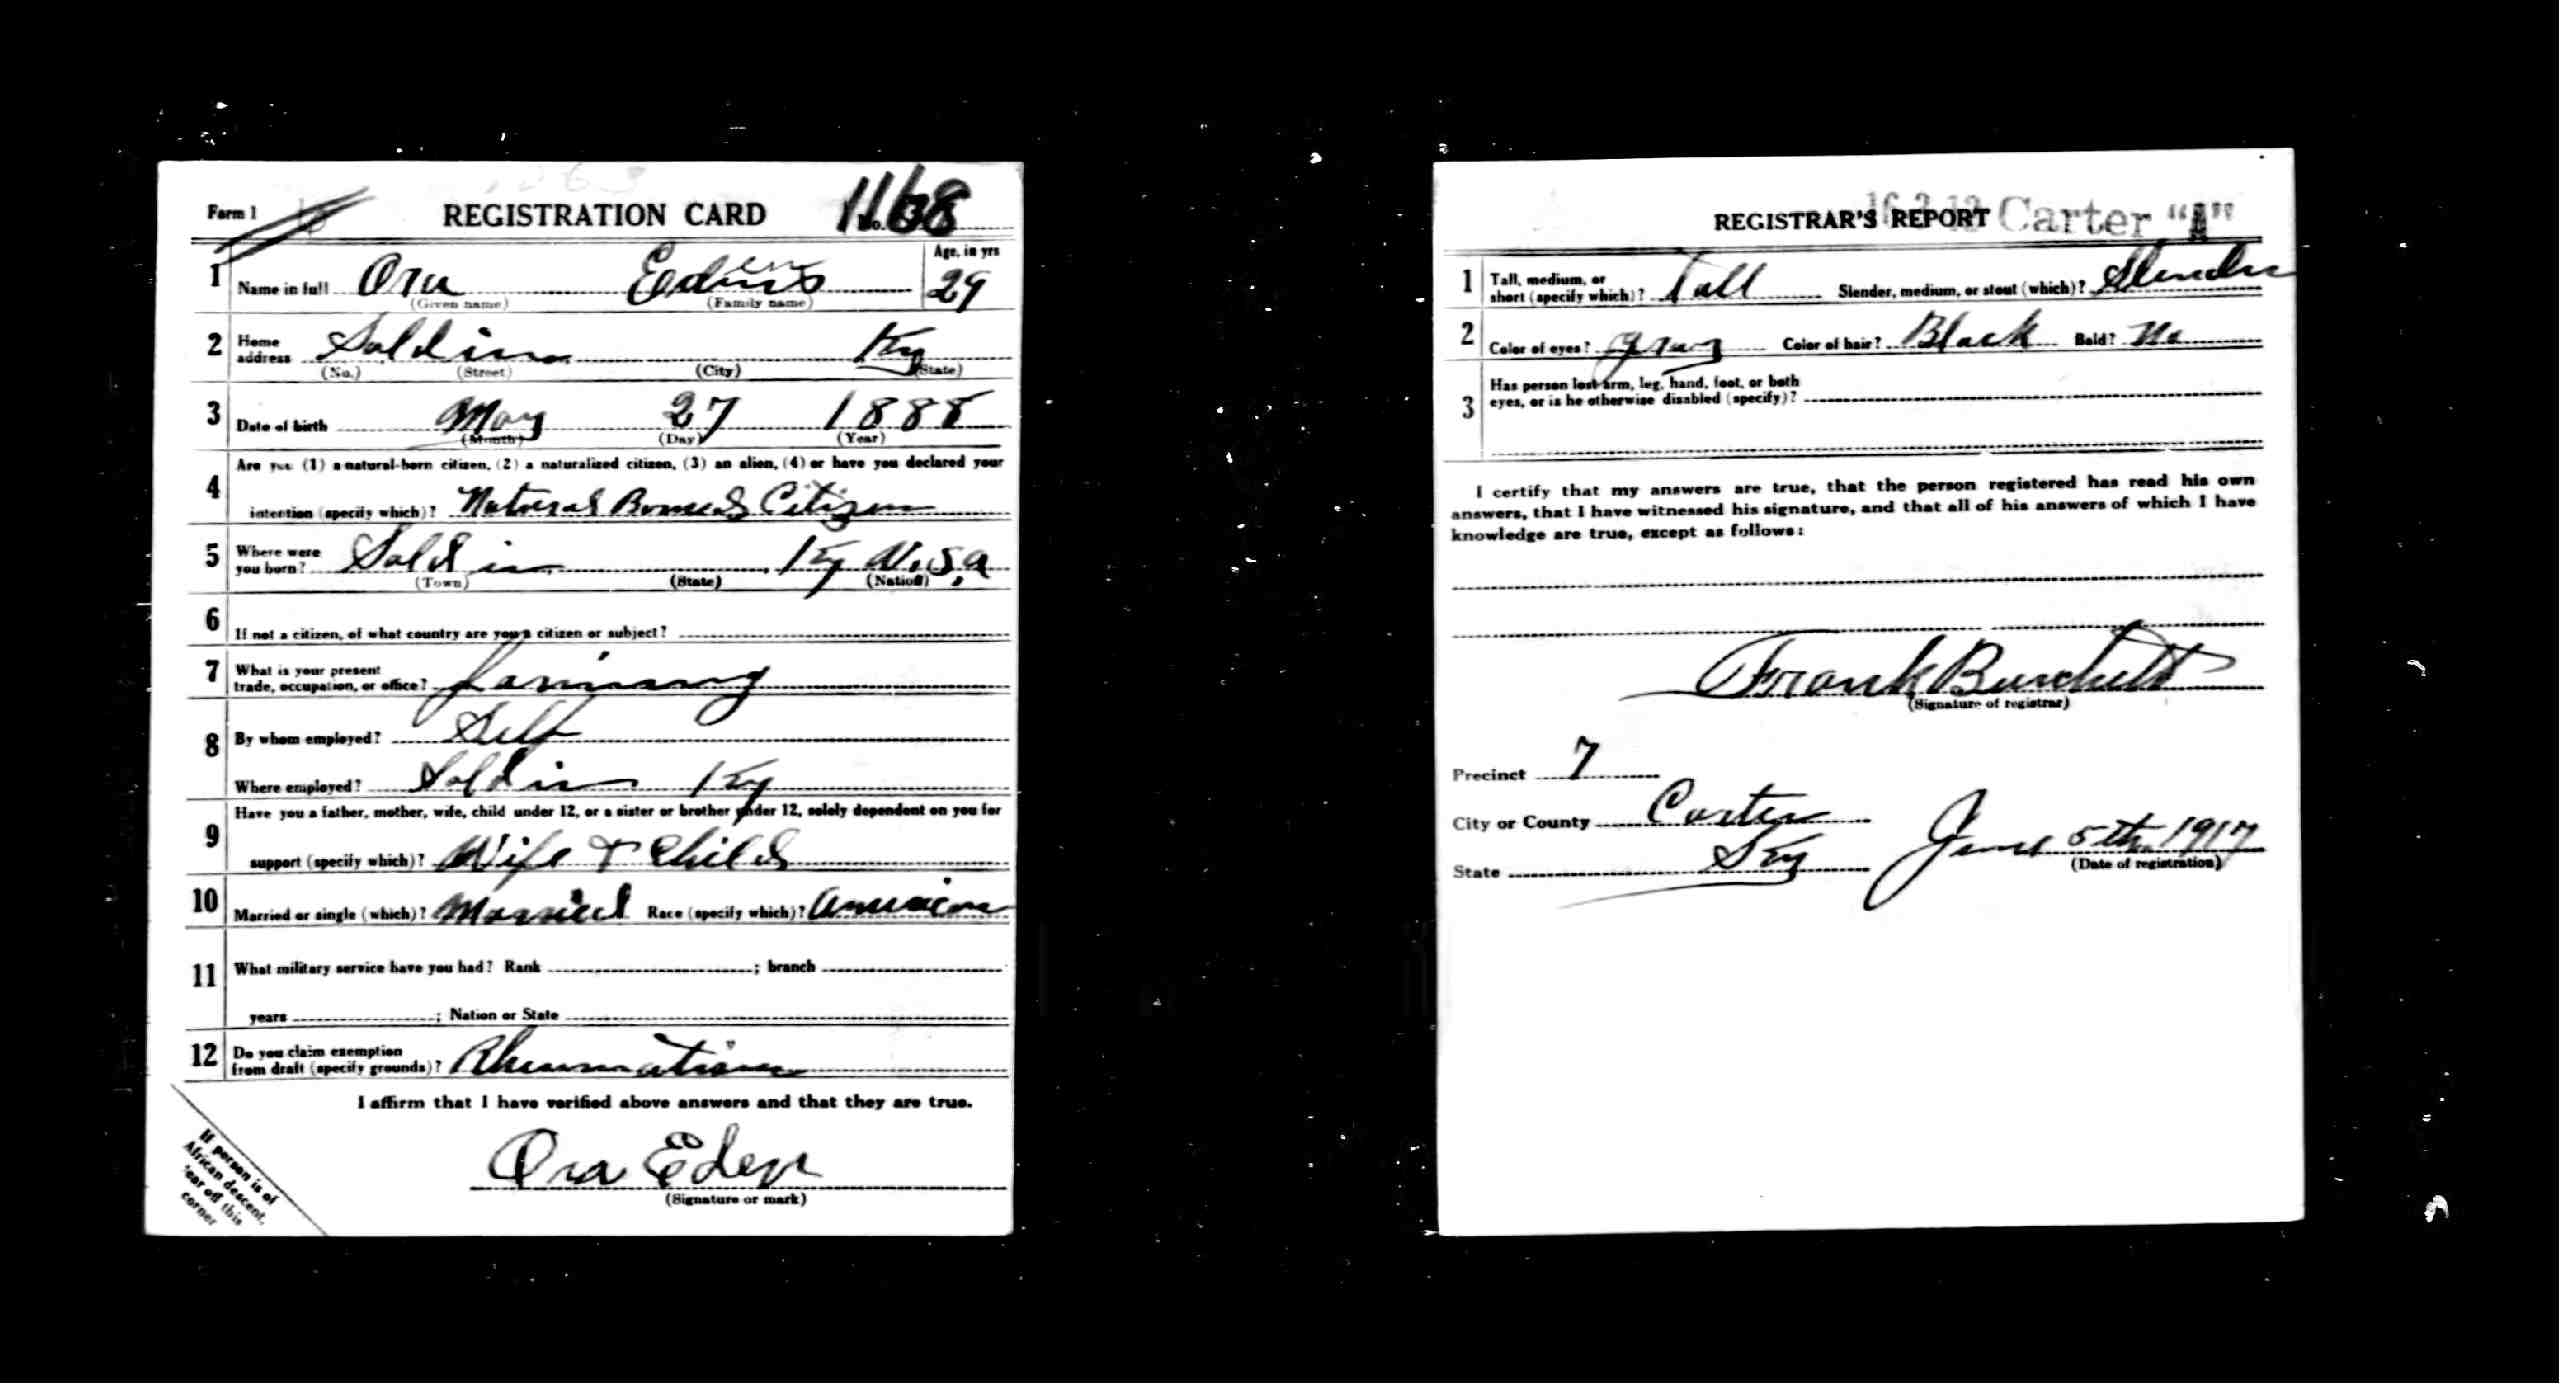 Form 1 REGISTRATION CARD No. 1168
1 Name in full Ora Edens Age, in yrs 29
(Given name) (Family name)
2 Home address Soldier Ky
(No.) (Street) (City) (State)
3 Date of birth May 27 1888
(Month) (Day) (Year)
4 Are you (1) a natural-born citizen, (2) a naturalized citizen, (3) an alien, (4) or have you declared your
intention (specify which)? Natural Citizen
5 Where were you born? Soldier, Ky U.S.a
(Town) (State) (Nation)
6 If not a citizen, of what country are you a citizen or subject?
7 What is your present
trade, occupation, or office? farming
8 By whom employed? Self
Where employed? Soldier Ky
9 Have you a father, mother, wife, child under 12, or a sister or brother under 12, solely dependent on you for
support (specify which)? Wife & Child
10 Married or single (which)? Married Race (specify which)? American
11 What military service have you had? Rank ; branch
years ; Nation or State
12 Do you claim exemption
from draft (specify grounds)? Rheumatism
I affirm that I have verified above answers and that they are true.
Ora Eden
(Signature or mark)
If person is of
African descent,
tear off this
corner
REGISTRAR'S REPORT Carter "A"
1 Tall, medium, or
short (specify which)? Tall Slender, medium, or stout (which)? Slender
2 Color of eyes? gray Color of hair? Black Bald? No
3 Has person lost arm, leg, hand, foot, or both
eyes, or is he otherwise disabled (specify)?
I certify that my answers are true, that the person registered has read his own
answers, that I have witnessed his signature, and that all of his answers of which I have
knowledge are true, except as follows:
Frank Burchett
(Signature of registrar)
Precinct 7
City or County Carter
State Ky June 5th 1917
(Date of registration)